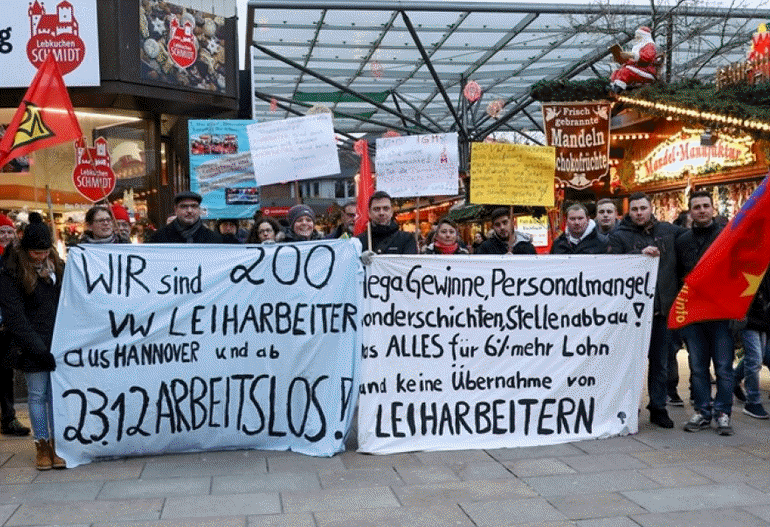 Lebkuchen
SCHMIDT
Lebkuchen
SCHMIDT
Lebkuchen
SCHMIDT
Frisch gebrannte
Mandeln
Schokofrüchte
Mandel-Manufaktur
WIR sind 200
VW LEIHARBEITER
aus HANNOVER und ab
23.12 ARBEITSLOS!
ega Gewinne, Personalmangel,
onderschichten, Stellenabbau!
as ALLES für 6% mehr Lohn
und keine Übernahme von
LEIHARBEITERN